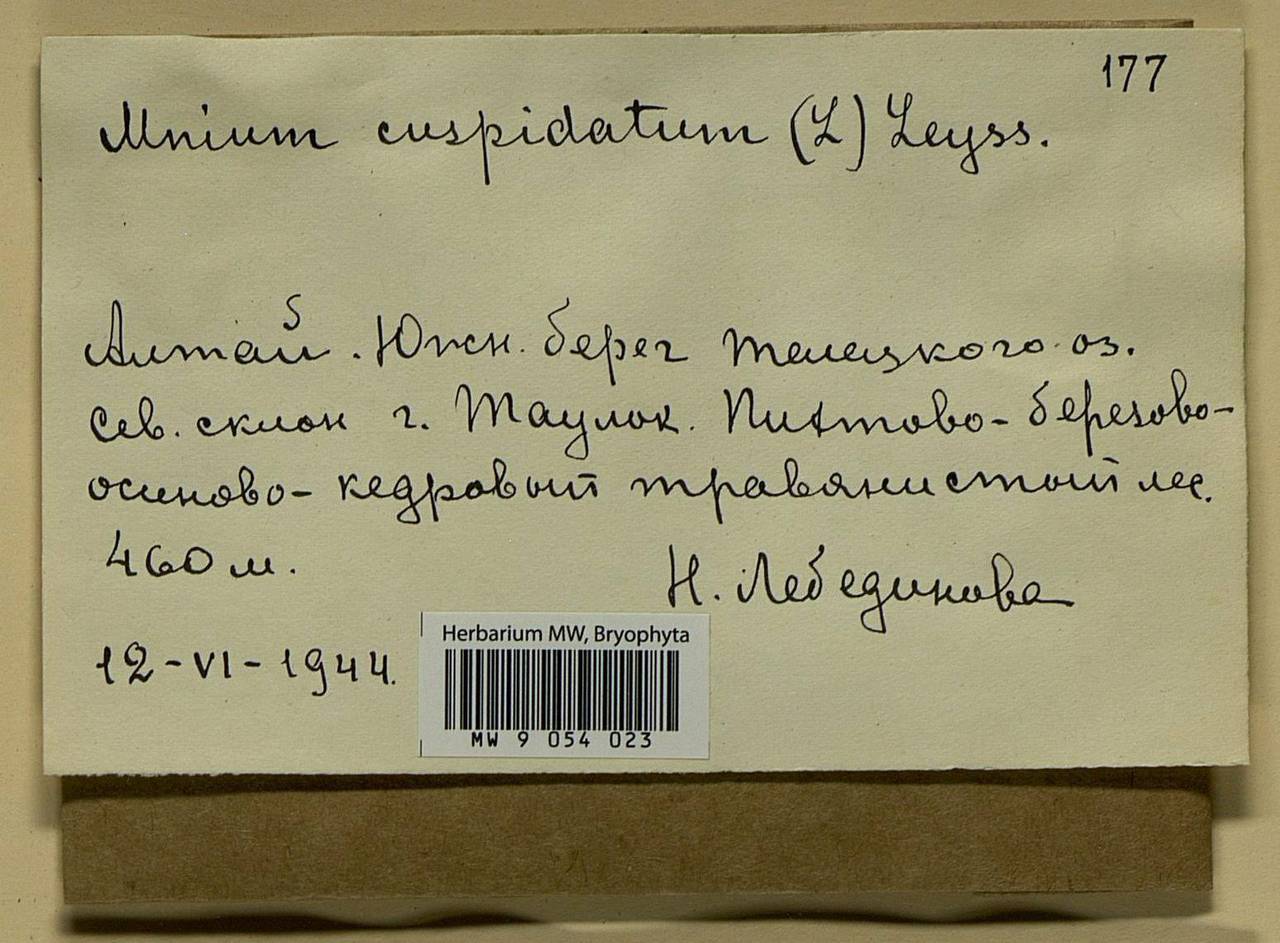 177
Mnium cuspidatum (L) Leyss.
Алтай. Южн. берег Телецкого оз.
Сев. склон г. Таулок. Пихтово-березово-
осиново-кедровый травянистый лес.
460 м.
Н. Лебединова
12-VI-1944.
Herbarium MW, Bryophyta
MW 9 054 023